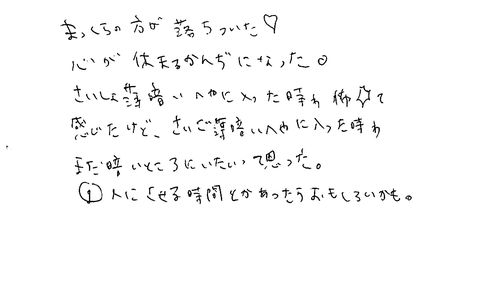 まっくらの方が落ちついた♡
心が休まるかんぢになった。
さいしょ薄暗いへやに入った時わ怖☆て
感じたけど、さいご薄暗いへやに入った時わ
まだ暗いところにいたいって思った。
①人にさせる時間とかあったらおもしろいかも。